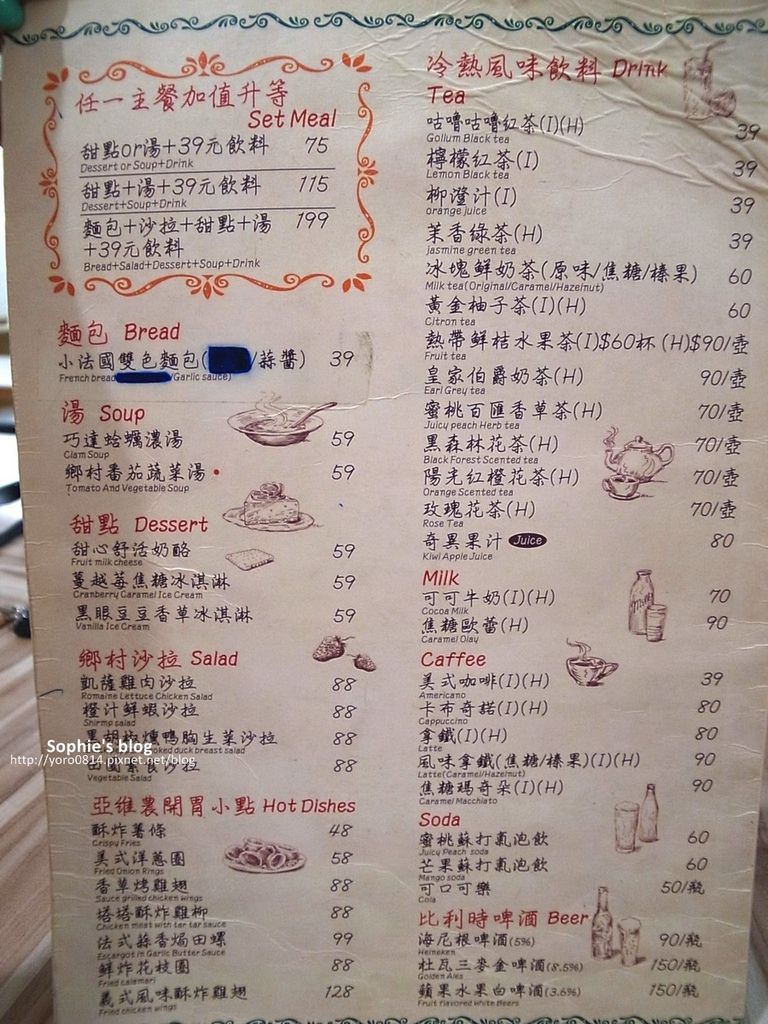 任一主餐加值升等
Set Meal
甜點or湯+39元飲料 75
Dessert or Soup+Drink
甜點+湯+39元飲料 115
Dessert+Soup+Drink
麵包+沙拉+甜點+湯 199
+39元飲料
Bread+Salad+Dessert+Soup+Drink
麵包 Bread
小法國雙色麵包( /蒜醬) 39
French bread /Garlic sauce)
湯 Soup
巧達蛤蠣濃湯 59
Clam Soup
鄉村番茄蔬菜湯 59
Tomato And Vegetable Soup
甜點 Dessert
甜心舒活奶酪 59
Fruit milk cheese
蔓越莓焦糖冰淇淋 59
Cranberry Caramel Ice Cream
黑眼豆豆香草冰淇淋 59
Vanilla Ice Cream
鄉村沙拉 Salad
凱薩雞肉沙拉 88
Romaine Lettuce Chicken Salad
橙汁鮮蝦沙拉 88
Shrimp salad
黑胡椒燻鴨胸生菜沙拉 88
oked duck breast salad
田園素食沙拉 88
Vegetable Salad
Sophie's blog
http://yoro0814.pixnet.net/blog
亞維農開胃小點 Hot Dishes
酥炸薯條 48
Crispy Fries
美式洋蔥圈 58
Fried Onion Rings
香草烤雞翅 88
Sauce grilled chicken wings
塔塔酥炸雞柳 88
Chicken meat with tar tar sauce
法式蒜香焗田螺 99
Escargot in Garlic Butter Sauce
鮮炸花枝圈 88
Fried calamari
義式風味酥炸雞翅 128
Fried chicken wings
冷熱風味飲料 Drink
Tea
咕嚕咕嚕紅茶(I)(H) 39
Gollum Black tea
檸檬紅茶(I) 39
Lemon Black tea
柳澄汁(I) 39
orange juice
茉香綠茶(H) 39
jasmine green tea
冰塊鮮奶茶(原味/焦糖/榛果) 60
Milk tea(Original/Caramel/Hazelnut)
黃金柚子茶(I)(H) 60
Citron tea
熱帶鮮桔水果茶(I)$60杯 (H)$90/壺
Fruit tea
皇家伯爵奶茶(H) 90/壺
Earl Grey tea
蜜桃百匯香草茶(H) 70/壺
Juicy peach Herb tea
黑森林花茶(H) 70/壺
Black Forest Scented tea
陽光紅橙花茶(H) 70/壺
Orange Scented tea
玫瑰花茶(H) 70/壺
Rose Tea
奇異果汁 Juice 80
Kiwi Apple Juice
Milk
可可牛奶(I)(H) 70
Cocoa Milk
焦糖歐蕾(I)(H) 90
Caramel Olay
Caffee
美式咖啡(I)(H) 39
Americano
卡布奇諾(I)(H) 80
Cappuccino
拿鐵(I)(H) 80
Latte
風味拿鐵(焦糖/榛果)(I)(H) 90
Latte(Caramel/Hazelnut)
焦糖瑪奇朵(I)(H) 90
Caramel Macchiato
Soda
蜜桃蘇打氣泡飲 60
Juicy Peach soda
芒果蘇打氣泡飲 60
Mango soda
可口可樂 50/瓶
Cola
比利時啤酒 Beer
海尼根啤酒(5%) 90/瓶
Heineken
杜瓦三麥金啤酒(8.5%) 150/瓶
Golden Ales
蘋果水果白啤酒(3.6%) 150/瓶
Fruit flavored White Beers